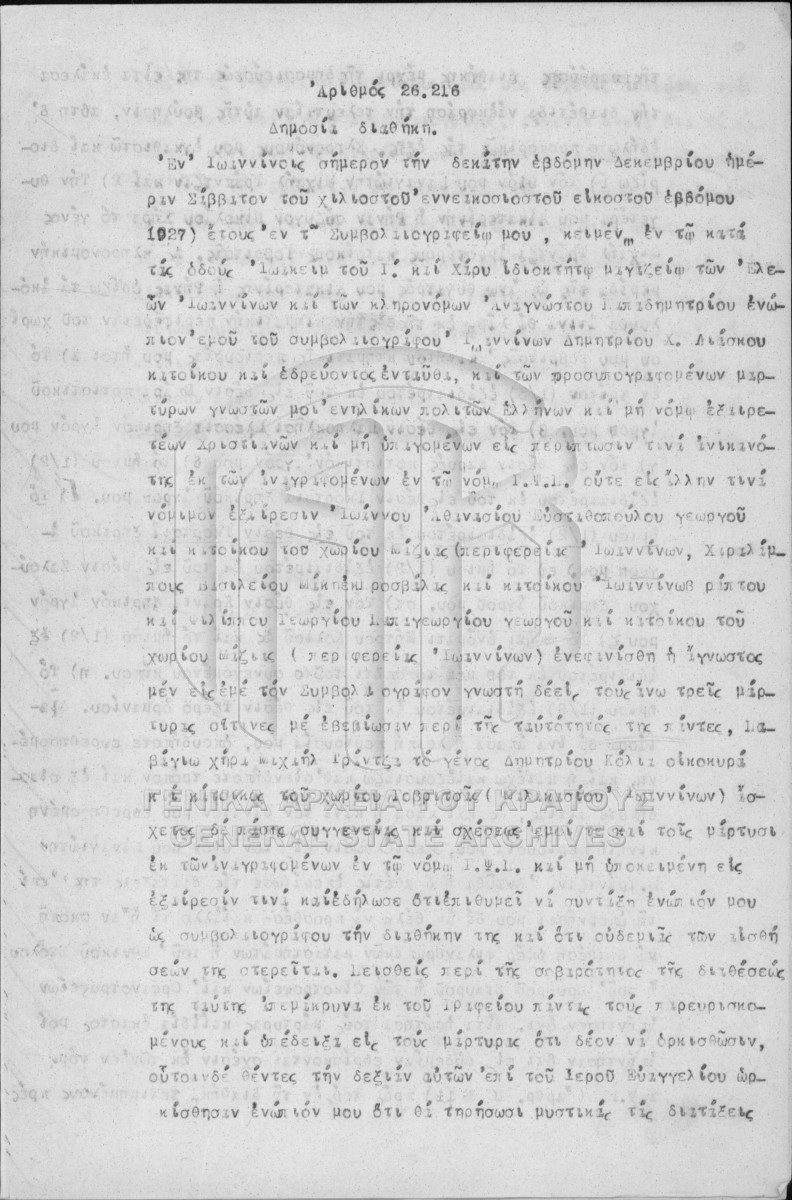 Ἀριθμός 26.216
Δημοσία διαθήκη.
Ἐν Ἰωαννίνοις σήμερον τήν δεκάτην ἑβδόμην Δεκεμβρίου ἡμέ-
ραν Σάββατον τοῦ χιλιοστοῦ ἐννεακοσιοστοῦ εἰκοστοῦ ἑβδόμου
1927) ἔτους ἐν τῶ Συμβολαιογραφείῳ μου , κειμένω ἐν τῷ κατά
τάς ὁδούς Ἰωακείμ τοῦ Γ. καί Χάρυ ἰδιοκτήτῳ μαγαζείῳ τῶν Ἐλε-
ῶν Ἰωαννίνων καί τῶν κληρονόμων Ἀναγνώστου Παπαδημητρίου ἐνώ-
πιον ἐμοῦ τοῦ συμβολαιογράφου Ἰωαννίνων Δημητρίου Χ. Λιάσκου
κατοίκου καί ἑδρεύοντος ἐνταῦθα, καί τῶν προσυπογραφομένων μαρ-
τύρων γνωστῶν μοι ἐνηλίκων πολιτῶν Ἑλλήνων καί μή νόμῳ ἐξαιρε-
τέων Χριστιανῶν καί μή ὑπαγομένων εἰς περίπτωσιν τινά ἀνικανό-
της ἐκ τῶν ἀναγραφομένων ἐν τῷ νόμω Γ.Ψ.Ι. οὔτε εἰς ἄλλην τινά
νόμιμον ἐξαίρεσιν Ἰωάννου Ἀθανασίου Εὐσταθοπούλου γεωργοῦ
καί κατοίκου τοῦ χωρίου Μάζιας (περιφερείας Ἰωαννίνων, Χαραλάμ-
πους Βασιλείου κατοίκου Ἰωαννίνων ράπτου
καί Φιλίππου Γεωργίου Παπαγεωργίου γεωργοῦ καί κατοίκου τοῦ
χωρίου Μάζιας ( περιφερείας Ἰωαννίνων) ἐνεφανίσθη ἡ ἄγνωστος
μέν εἰς ἐμέ τόν Συμβολαιογράφον γνωστή δέ εἰς τούς ἄνω τρεῖς μάρ-
τυρας οἵτινες μέ ἐβεβαίωσαν περί τῆς ταὐτότητός της πάντες, Λα-
βάγιω χήρα Μιχαήλ Τράντζα τό γένος Δημητρίου Κόλια οἰκοκυρά
καί κάτοικος τοῦ χωρίου ἄσ-
χετος δέ πάσης συγγενείας καί σχέσεως ἐμοί τε καί τοῖς μάρτυσι
ἐκ τῶν ἀναγραφομένων ἐν τῷ νόμω Γ.Ψ.Ι. καί μή ὑποκειμένη εἰς
ἐξαίρεσίν τινά καί ἐδήλωσε ὅτι ἐπιθυμεῖ νά συντάξῃ ἐνώπιόν μου
ὡς συμβολαιογράφου τήν διαθήκην της καί ὅτι οὐδεμιᾶς τῶν αἰσθή
σεών της στερεῖται. Πεισθείς περί τῆς σοβαρότητος τῆς διαθέσεώς
της ταύτης ἀπεμάκρυνα ἐκ τοῦ Γραφείου πάντας τούς παρευρισκο-
μένους καί ὑπέδειξα εἰς τούς μάρτυρας ὅτι δέον νά ὁρκισθῶσιν,
οὗτοι νδέ θέντες τήν δεξιάν αὐτῶν ἐπί τοῦ Ιεροῦ Εὐαγγελίου ὡρ-
κίσθησαν ἐνώπιόν μου ὅτι θά τηρήσωσι μυστικάς τάς διατάξεις
ΓΕΝΙΚΑ ΑΡΧΕΙΑ ΤΟΥ ΚΡΑΤΟΥΣ
GENERAL STATE ARCHIVES